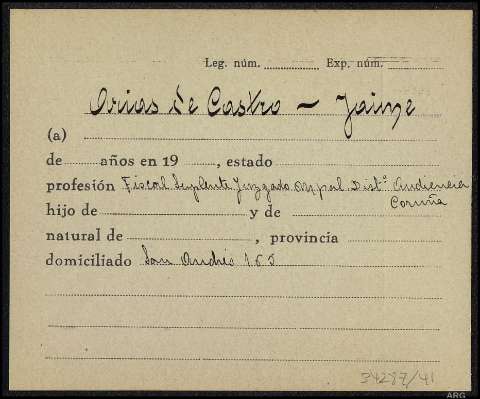 Leg. núm. Exp. núm.
Arias de Castro - Jaime
(a)
de años en 19 , estado
profesión Fiscal Suplente Juzgado Mpal. Distº. Audiencia
Coruña
hijo de y de
natural de , provincia
domiciliado San Andrés 163
34287/41
ARG